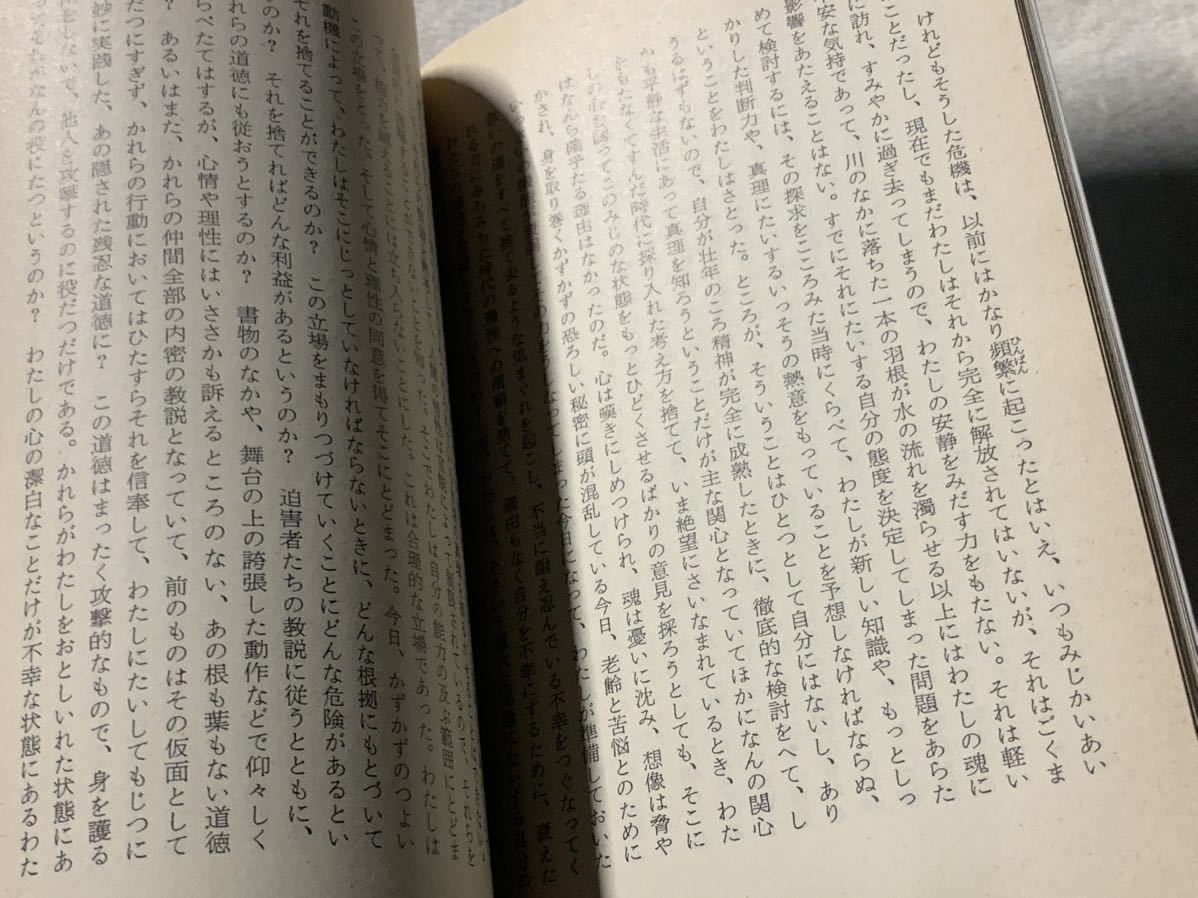 けれどもそうした危機は、以前にはかなり頻繁に起こったとはいえ、いつもみじかいあい
ひんぱん
ことだったし、現在でもまだわたしはそれから完全に解放されてはいないが、それはごくま
に訪れ、すみやかに過ぎ去ってしまうので、わたしの安静をみだす力をもたない。それは軽い
不安な気持であって、川のなかに落ちた一本の羽根が水の流れを濁らせる以上にはわたしの魂に
影響をあたえることはない。すでにそれにたいする自分の態度を決定してしまった問題をあらた
めて検討するには、その探求をこころみた当時にくらべて、わたしが新しい知識や、もっとしっ
かりした判断力や、真理にたいするいっそうの熱意をもっていることを予想しなければならぬ、
ということをわたしはさとった。ところが、そういうことはひとつとして自分にはないし、あり
うるはずもないので、自分が壮年のころ精神が完全に成熟したときに、徹底的な検討をへて、し
かも平静な生活にあって真理を知ろうということだけが主な関心となっていてほかになんの関心
をもたなくてすんだ時代に採り入れた考え方を捨てて、いま絶望にさいなまれているとき、わた
しの心を誘ってこのみじめな状態をもっとひどくさせるばかりの意見を採ろうとしても、そこに
はなんら確乎たる理由はなかったのだ。心は嘆きにしめつけられ、魂は憂いに沈み、想像は脅や
かされ、身を取り巻くかずかずの恐ろしい秘密に頭が混乱している今日、老齢と苦悩とのために
なってしまった今日になって、わたしが準備しておいた
を捨て去るような気まぐれを起こし、不当に耐え忍んでいる不幸をつぐなってく
理由もなく自分を不幸にするために、衰えた
ことができないことを知った。そこでわたしは自分の能力の及ぶ範囲にとどま
って、能力を超えることには立ち入らないことにした。これは合理的な立場であった。わたしは
この立場をとった。そして心情と理性の同意を得てそこにとどまった。今日、かずかずのつよい
動機によって、わたしはそこにじっとしていなければならないときに、どんな根拠にもとづいて
それを捨てることができるのか？　この立場をまもりつづけていくことにどんな危険があるとい
うのか？　それを捨てればどんな利益があるというのか？　迫害者たちの教説に従うとともに、
れらの道徳にも従おうとするのか？　書物のなかや、舞台の上の誇張した動作などで仰々しく
らべたてはするが、心情や理性にはいささかも訴えるところのない、あの根も葉もない道徳
？　あるいはまた、かれらの仲間全部の内密の教説となっていて、前のものはその仮面として
だつにすぎず、かれらの行動においてはひたすらそれを信奉して、わたしにたいしてもじつに
妙に実践した、あの隠された残忍な道徳に？　この道徳はまったく攻撃的なもので、身を護る
をしないで、他人を攻撃するのに役だつだけである。かれらがわたしをおとしいれた状態にあ
なんの役にたつというのか？　わたしの心の潔白なことだけが不幸な状態にあるわた